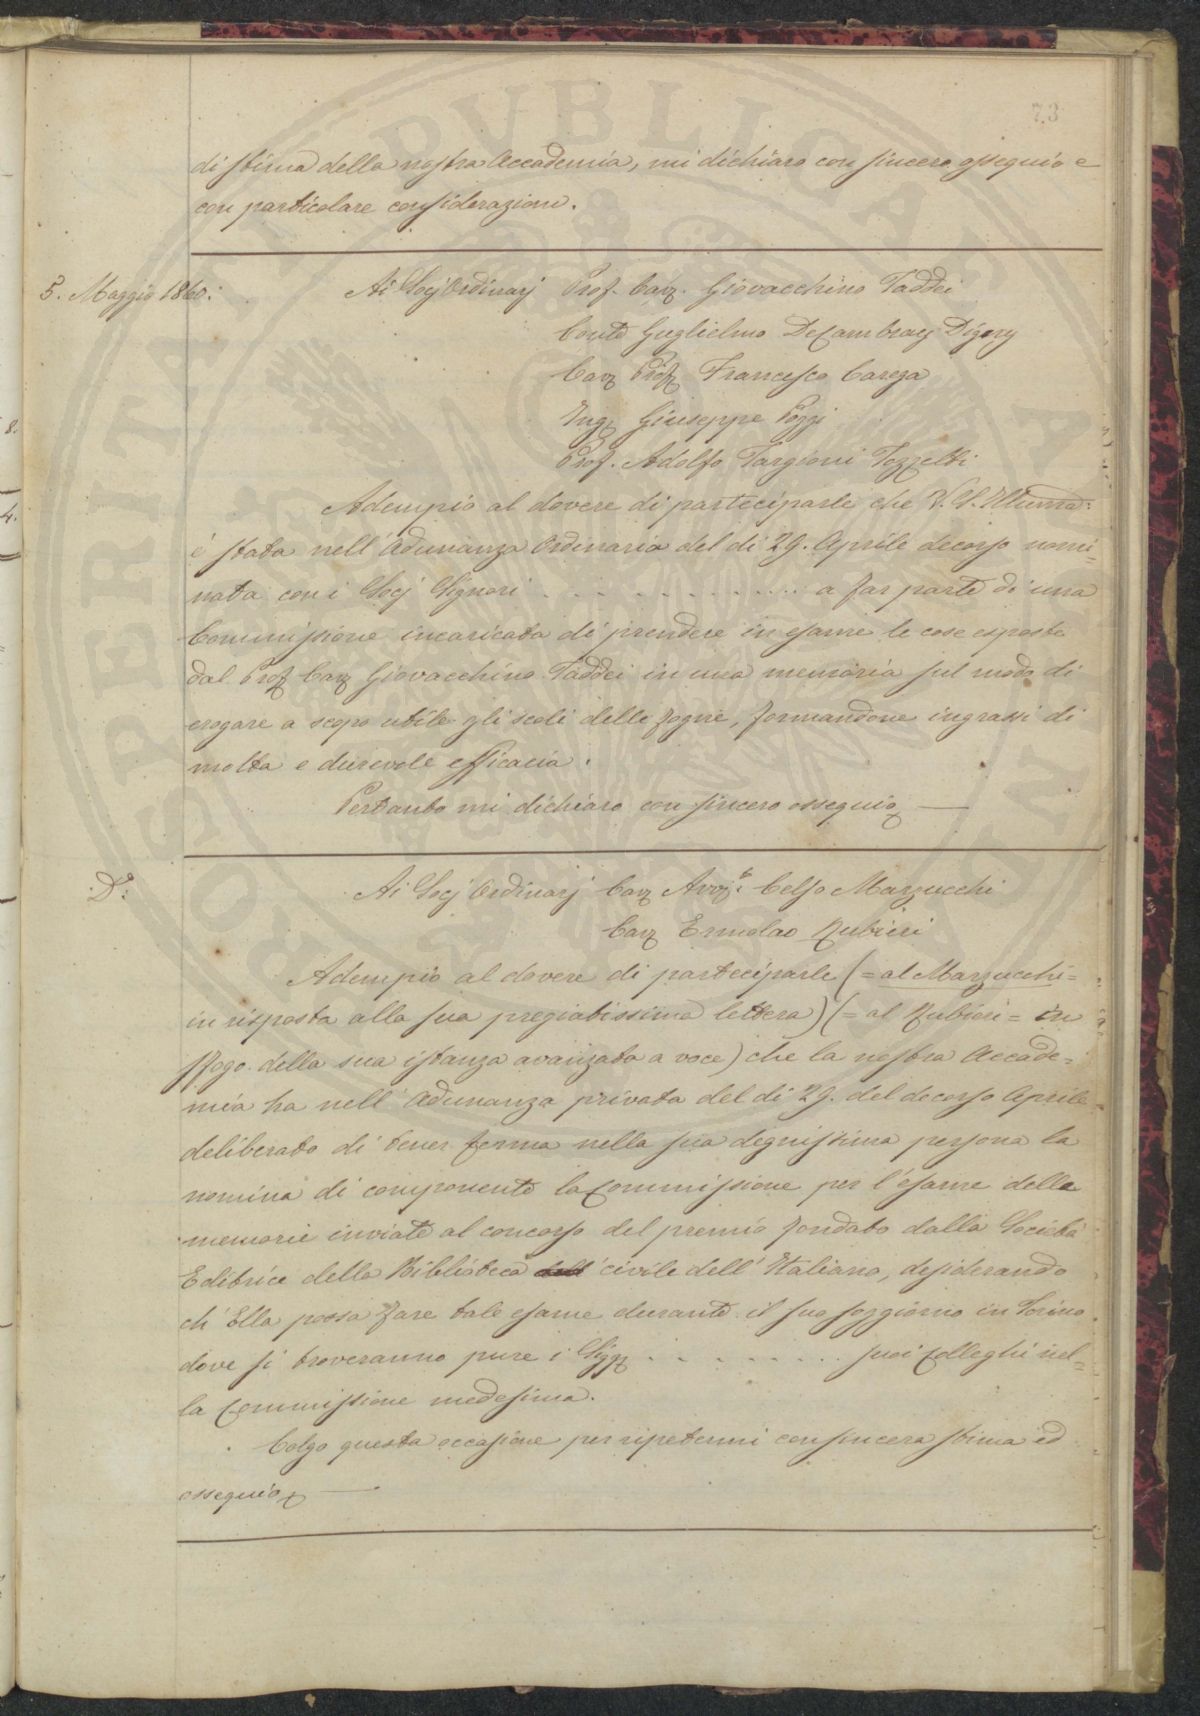 73
di stima della nostra Accademia, mi dichiaro con sincero ossequio e
con particolare considerazione.
5. Maggio 1860:
Ai Socj Ordinarj Prof. Cav. Giovacchino Taddei
Conte Guglielmo DeCambray Digny
Cav. Prof. Francesco Carega
Ing. Giuseppe Pozzi
Prof. Adolfo Targioni Tozzetti
Adempio al dovere di parteciparle che V. S. Illuma:
è stata nell'Adunanza Ordinaria del di 29. Aprile decorso nomi=
nata con i Socj Signori . . . . . . . . . . . . a far parte di una
Commissione incaricata di prendere in esame le cose esposte
dal Prof. Cav. Giovacchino Taddei in una memoria sul modo di
erogare a scopo utile gli scoli delle fogne, formandone ingrassi di
molta e durevole efficacia.
Pertanto mi dichiaro con sincero ossequio —
D°:
Ai Socj Ordinarj Cav. Avv. Celso Marzucchi
Cav. Ermolao Rubieri
Adempio al dovere di parteciparle (= al Marzucchi =
in risposta alla sua pregiatissima lettera) (= al Rubieri = in
sfogo della sua istanza avanzata a voce) che la nostra Accade=
mia ha nell'Adunanza privata del di 29. del decorso Aprile
deliberato di tener ferma nella sua degnissima persona la
nomina di componente la Commissione per l'esame delle
memorie inviate al concorso del premio fondato dalla Società
Editrice della Biblioteca civile dell'Italiano, desiderando
ch'Ella possa fare tale esame durante il suo soggiorno in Torino
dove si troveranno pure i Sigg. . . . . . . . . suoi Colleghi nel=
la Commissione medesima.
Colgo questa occasione per ripetermi con sincera stima ed
ossequio —
8.
4.
PERITATI PVBLICAE